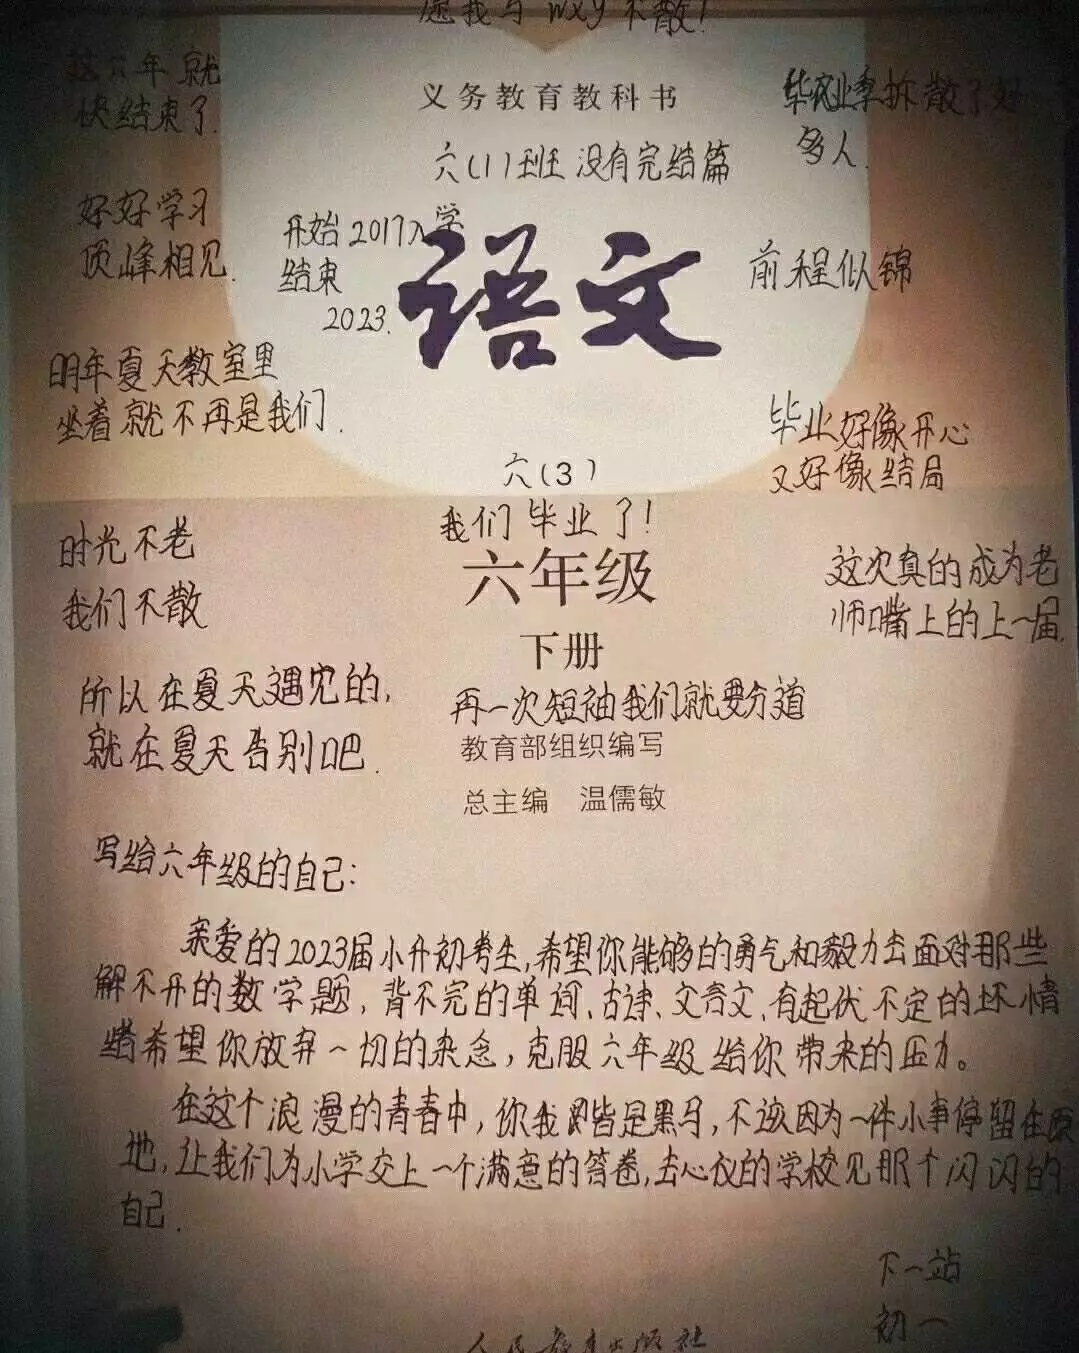 愿我与 wxy 不散！
这六年就
快结束了
义务教育教科书
毕业季拆散了好
多人.
六(1)班没有完结篇
好好学习
顶峰相见.
开始2017入学
结束
2023.
语文
前程似锦
明年夏天教室里
坐着就不再是我们.
毕业好像开心
又好像结局
六(3)
我们毕业了!
时光不老
我们不散
六年级
这次真的成为老
师嘴上的上一届.
下册
所以在夏天遇见的,
就在夏天告别吧.
再一次短袖我们就要分道
教育部组织编写
总主编 温儒敏
写给六年级的自己:
亲爱的2023届小升初考生,希望你能够的勇气和毅力去面对那些
解不开的数学题,背不完的单词、古诗、文言文、有起伏不定的坏情
绪希望你放弃一切的杂念,克服六年级给你带来的压力。
在这个浪漫的青春中,你我皆是黑马,不该因为一件小事停留在原
地,让我们为小学交上一个满意的答卷,去心仪的学校见那个闪闪的
自己.
下一站
初一
人民教育出版社